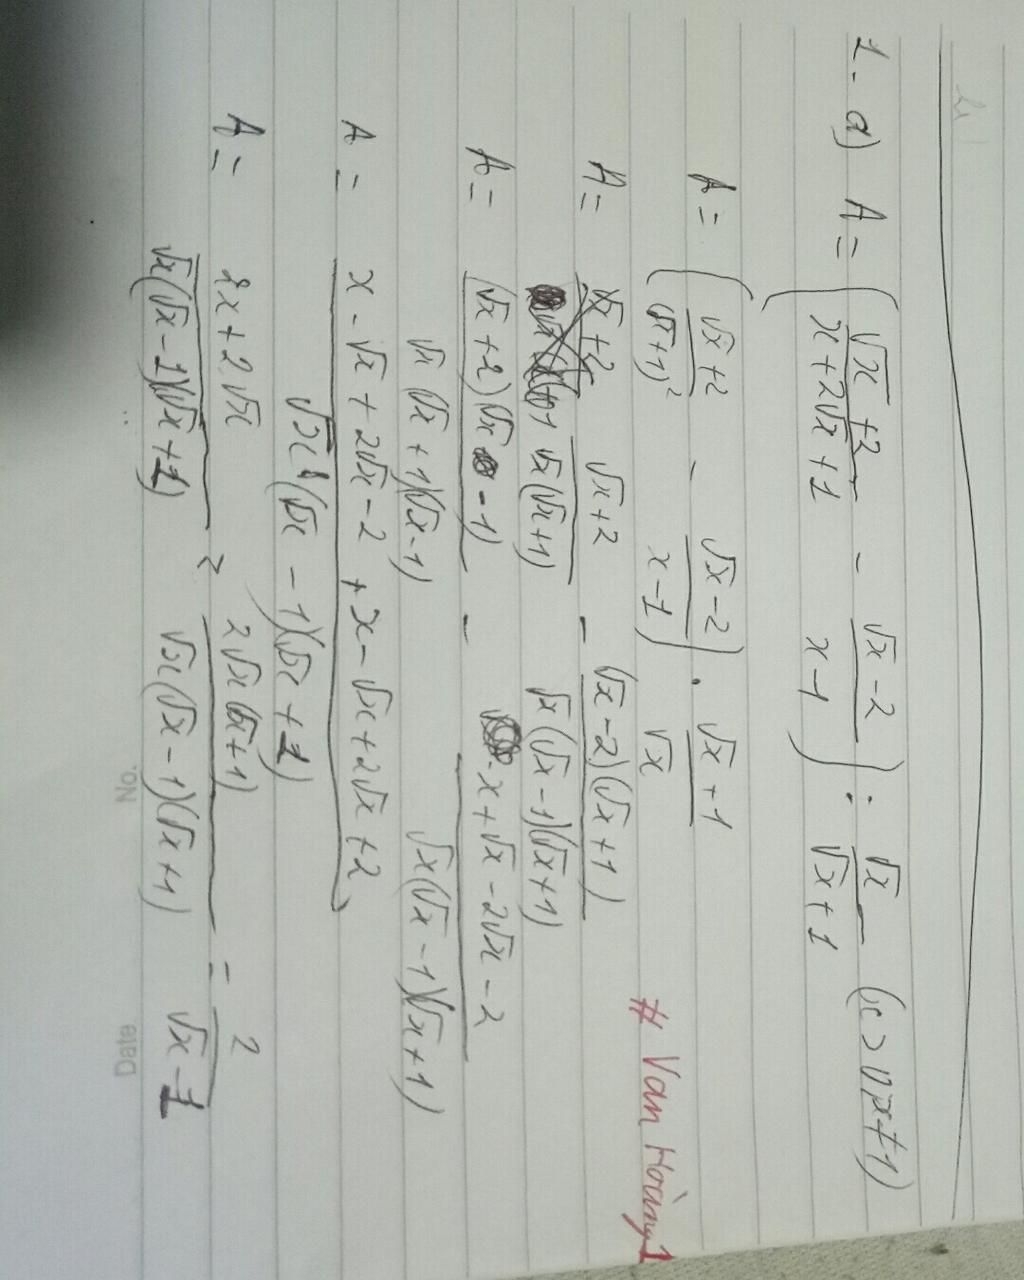 1. a) A = ( (√x + 2)/(x + 2√x + 1) - (√x - 2)/(x - 1) ) : √x/(√x + 1) (x > 0, x ≠ 1)
A = ( (√x + 2)/(√x + 1)² - (√x - 2)/(x - 1) ) . (√x + 1)/√x
# Van Hoàng 1
A = (√x + 2)/(√x(√x + 1)) - (√x - 2)(√x + 1)/(√x(√x - 1)(√x + 1))
A = (√x + 2)(√x - 1)/(√x(√x + 1)(√x - 1)) - (x + √x - 2√x - 2)/(√x(√x - 1)(√x + 1))
A = (x - √x + 2√x - 2 + x - √x + 2√x + 2)/(√x(√x - 1)(√x + 1))
A = (2x + 2√x)/(√x(√x - 1)(√x + 1)) = 2√x(√x + 1)/(√x(√x - 1)(√x + 1)) = 2/(√x - 1)
No.
Date